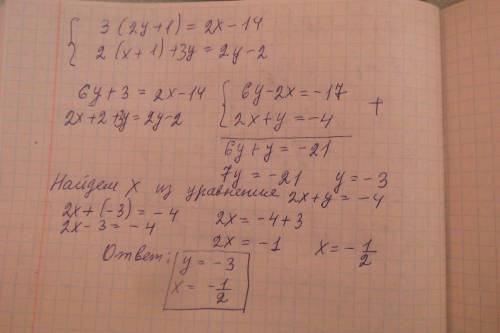 3(2y+1) = 2x-14
2(x+1)+3y = 2y-2
6y+3 = 2x-14
2x+2+3y=2y-2
6y-2x=-17
2x+y=-4
+
6y+y = -21
7y = -21 y = -3
Найдем x из уравнения 2x+y = -4
2x+(-3) = -4
2x-3 = -4
2x = -4+3
2x = -1 x = -1/2
Ответ: y = -3
x = -1/2